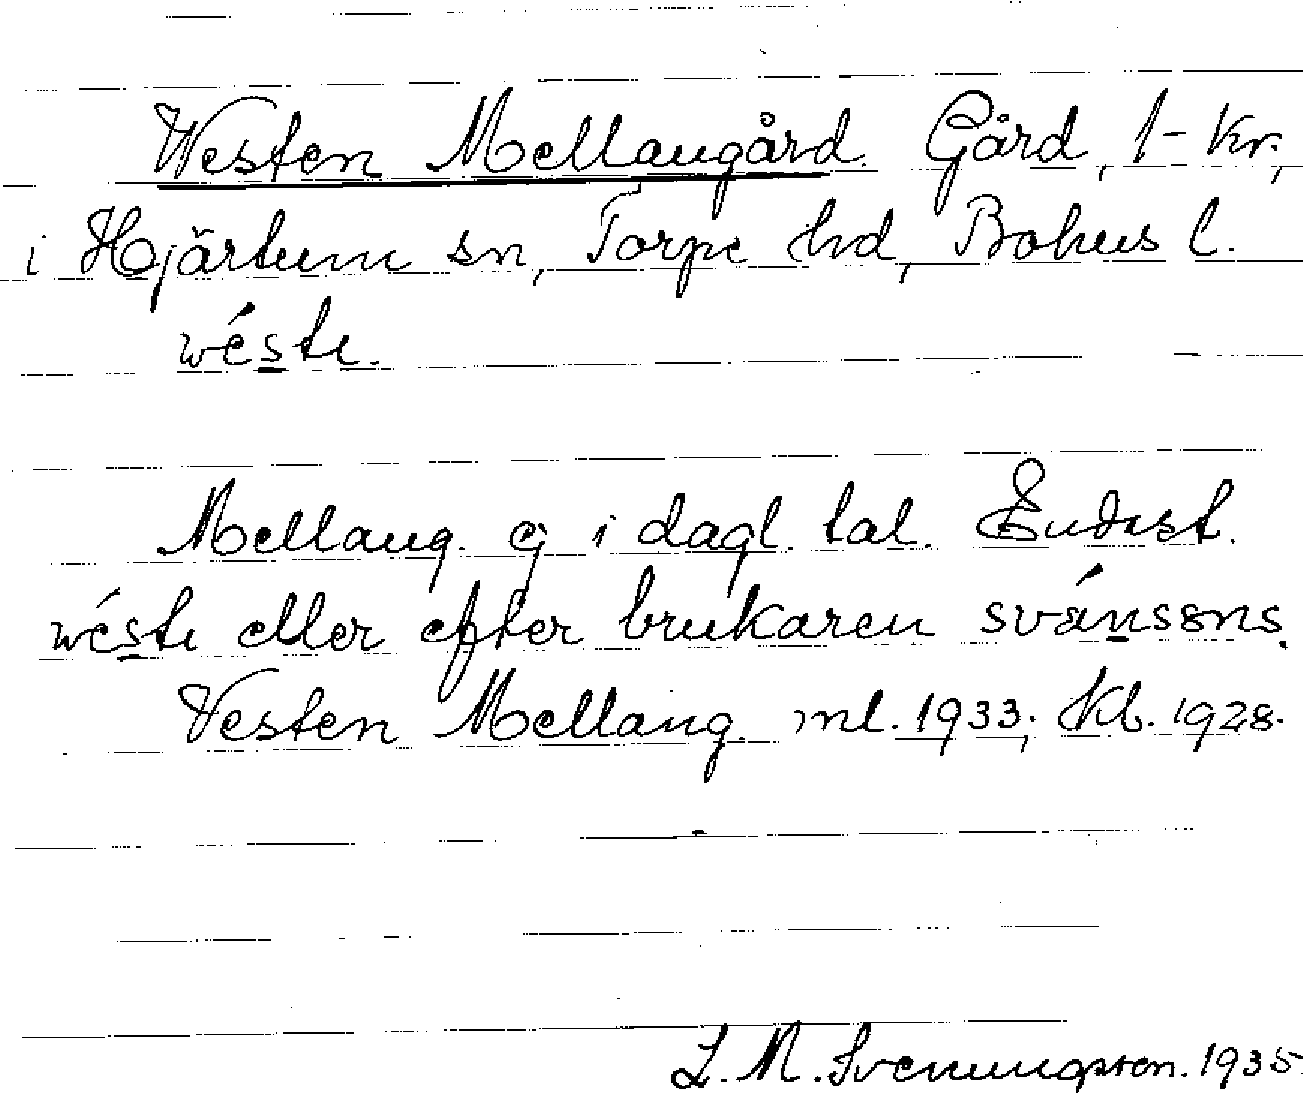 Westen Mellangård. Gård, 1-kr,
i Hjärtum sn, Torpe hd, Bohus l.
wéste.
Mellang. ej i dagl. tal. Endast.
wéste eller efter brukaren svánsøns.
Vesten Mellang. ml. 1933; Kb. 1928.
L. M. Svenungsson. 1935